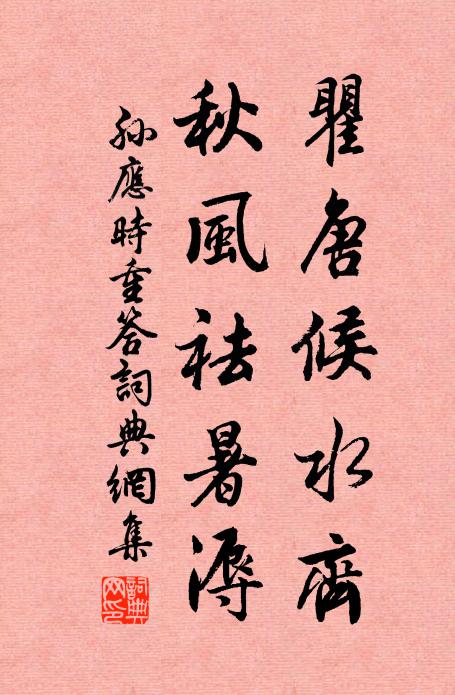 瞿唐候水齊
秋風祛暑溽
孫應時重答詞典網集
詞典網印